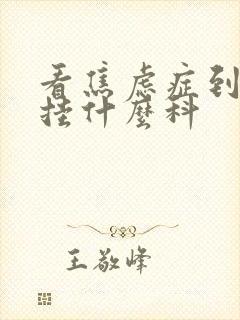 看焦虑症到
挂什麼科
王敬峰